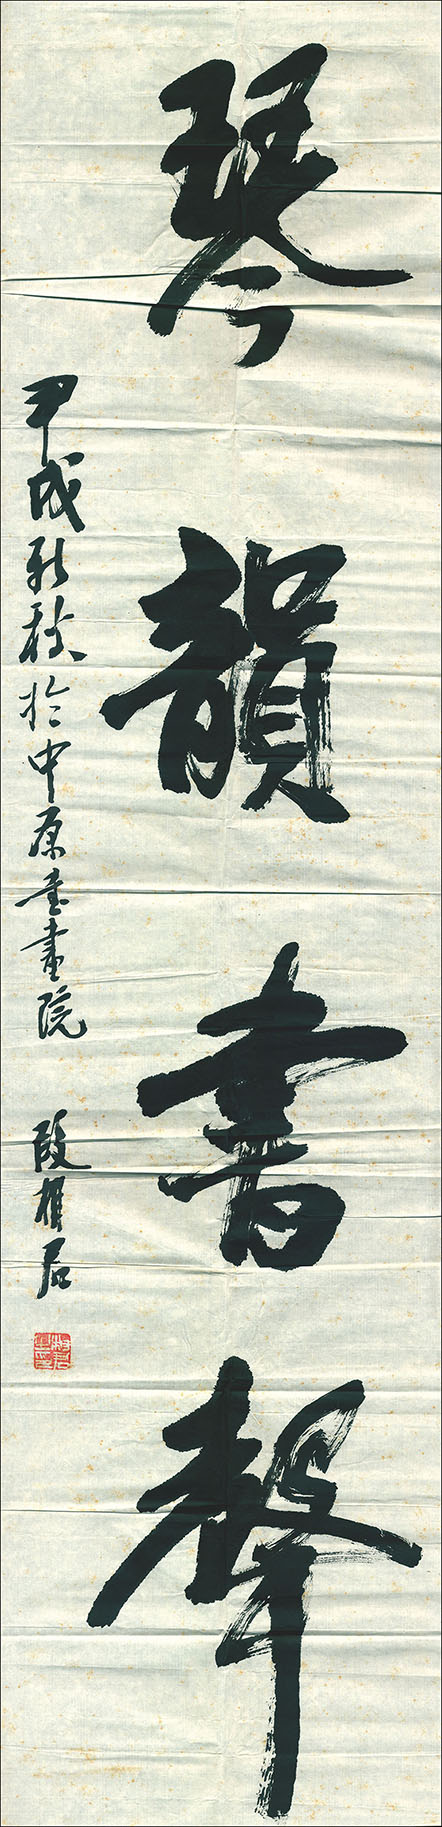 琴韻書聲
甲戌新秋於中原書畫院 段相君